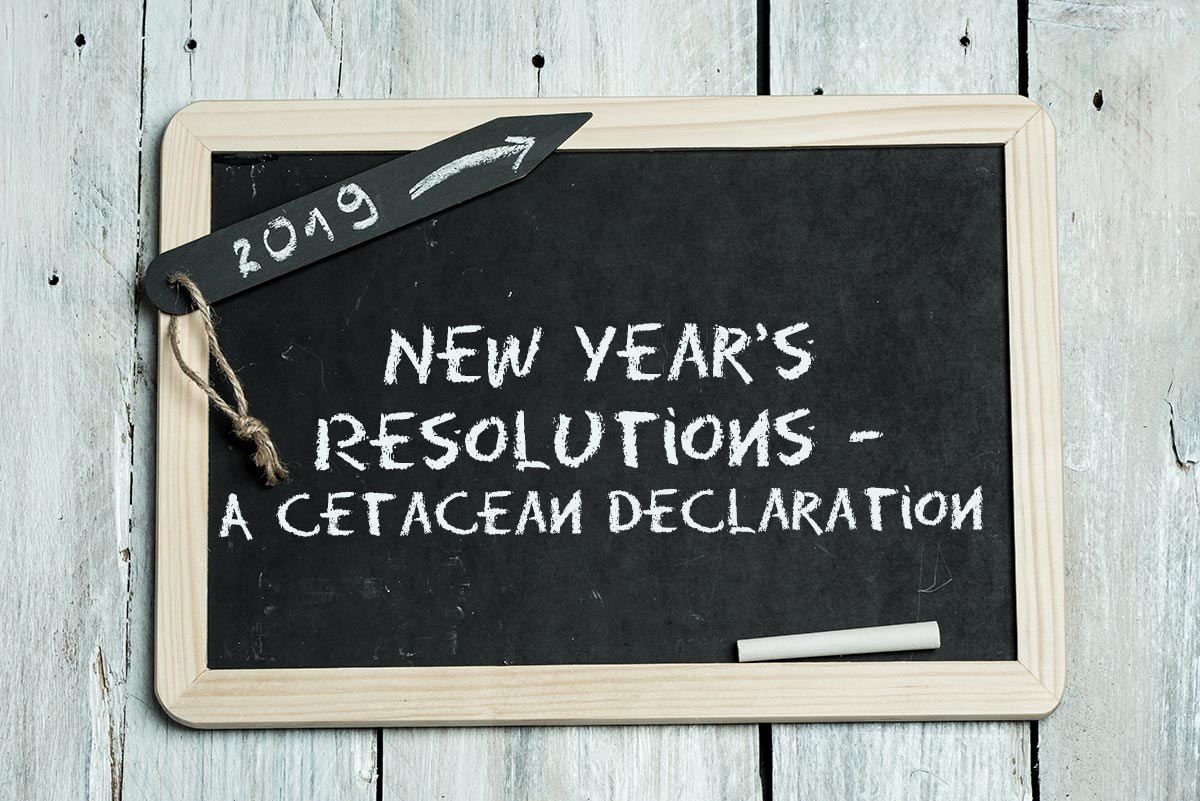 2019
NEW YEAR'S
RESOLUTIONS -
A CETACEAN DECLARATION